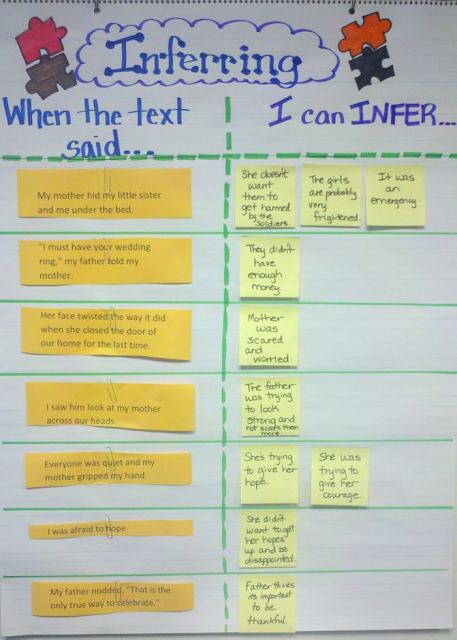 Inferring
When the text
said...
I can INFER...
My mother hid my little sister
and me under the bed.
She doesn't
want
them to
get harmed
by the
soldiers.
The girls
are probably
very
frightened.
It was
an
emergency.
"I must have your wedding
ring," my father told my
mother.
They didn't
have
enough
money.
Her face twisted the way it did
when she closed the door of
our home for the last time.
Mother
was
scared
and
worried.
I saw him look at my mother
across our heads.
The father
was trying
to look
strong and
not scare them
more.
Everyone was quiet and my
mother gripped my hand.
She's trying
to give her
hope.
She was
trying to
give her
courage.
I was afraid to hope.
She didn't
want to get
her hopes
up and be
disappointed.
My father nodded. "That is the
only true way to celebrate."
Father thinks
its important
to be
thankful.